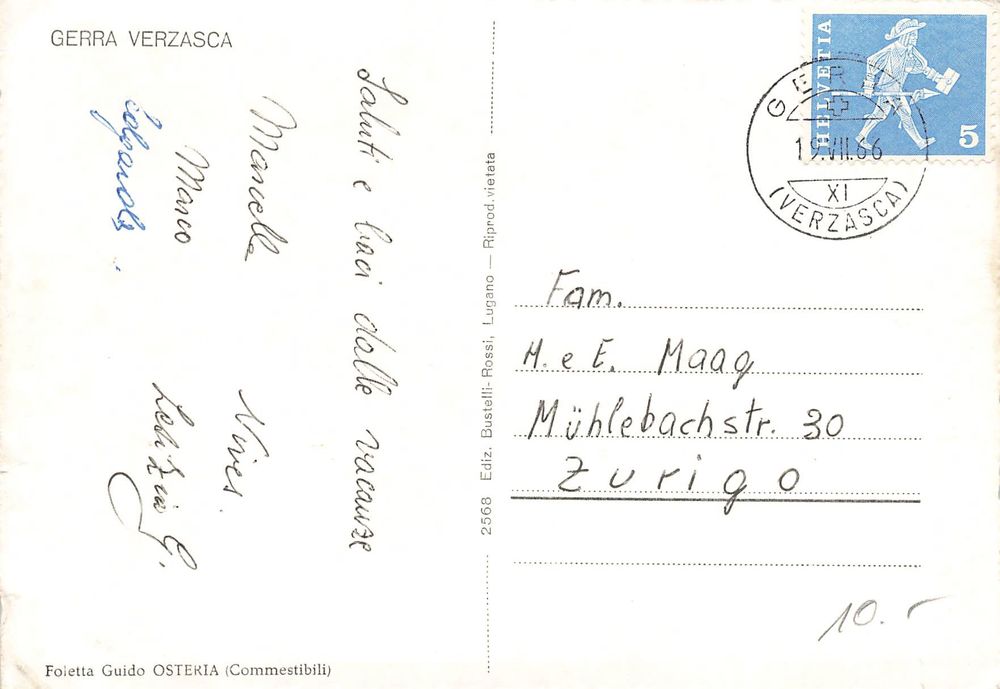 GERRA VERZASCA
Saluti e baci dalle vacanze
Marcella
Marco
Vives.
Letizia G.
Foletta Guido OSTERIA (Commestibili)
2568 Ediz. Bustelli-Rossi, Lugano — Riprod. vietata
HELVETIA
5
GERRA
19.VII.66
XI
(VERZASCA)
Fam.
M. e E. Maag
Mühlebachstr. 30
Zurigo
10.-